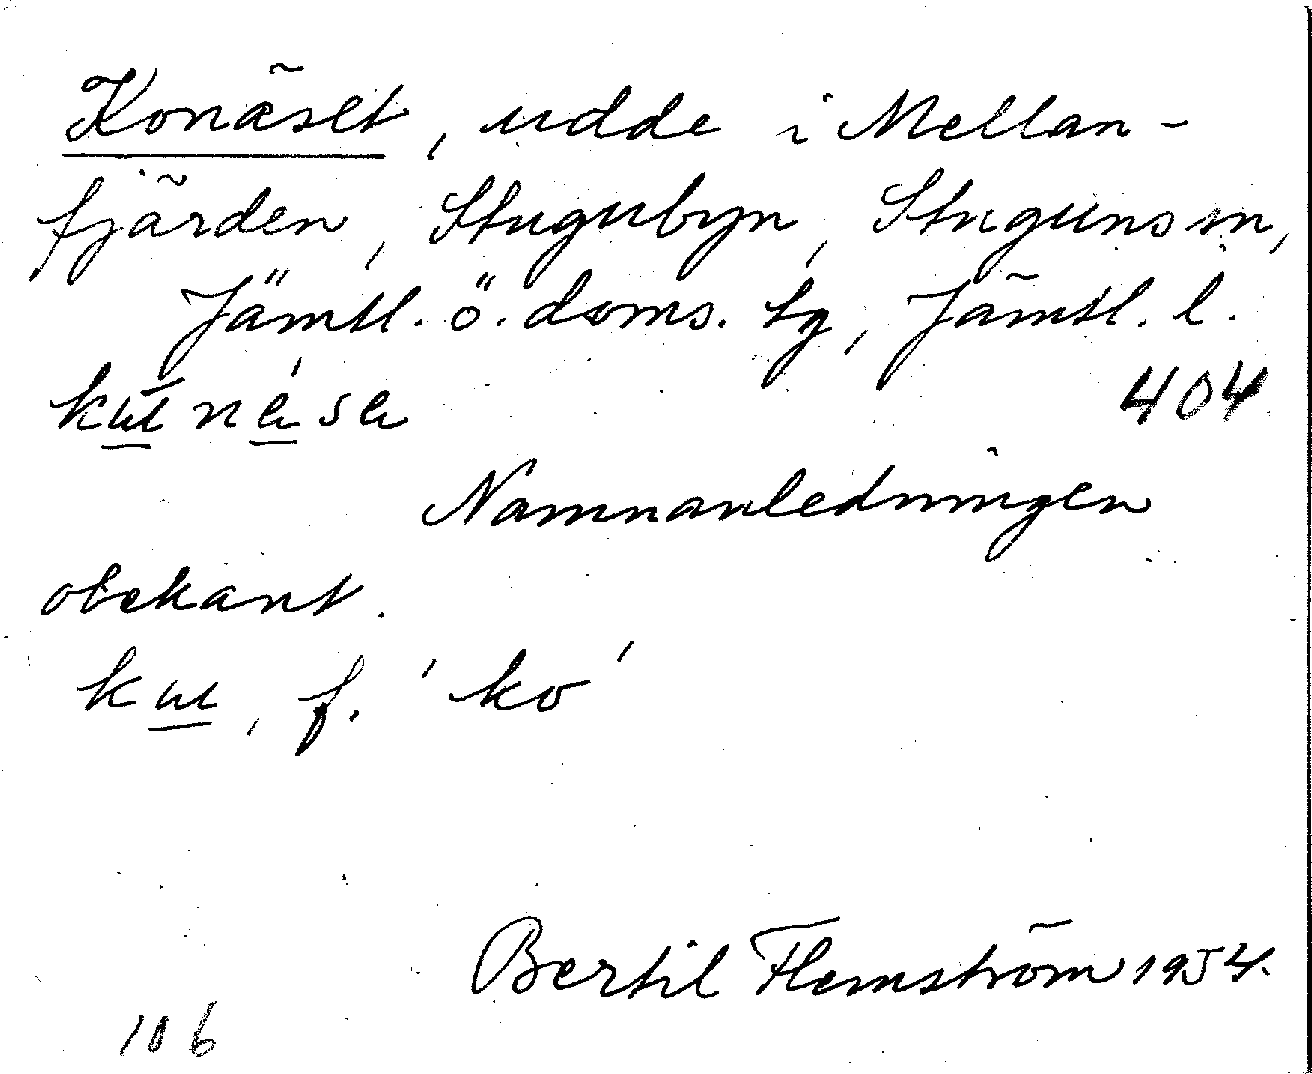 Konäset, udde i Mellan-
fjärden, Stugubyn, Stuguns sn,
Jämtl. ö. doms. tg, Jämtl. l.
404
Namnanledningen
obekant.
ku, f. 'ko'
Bertil Flemström 1954.
106